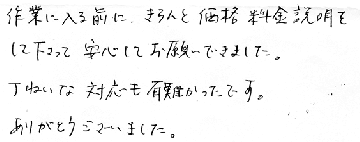 作業に入る前に、きちんと価格料金説明を
して下さって安心してお願いできました。
丁ねいな対応も有難かったです。
ありがとうございました。